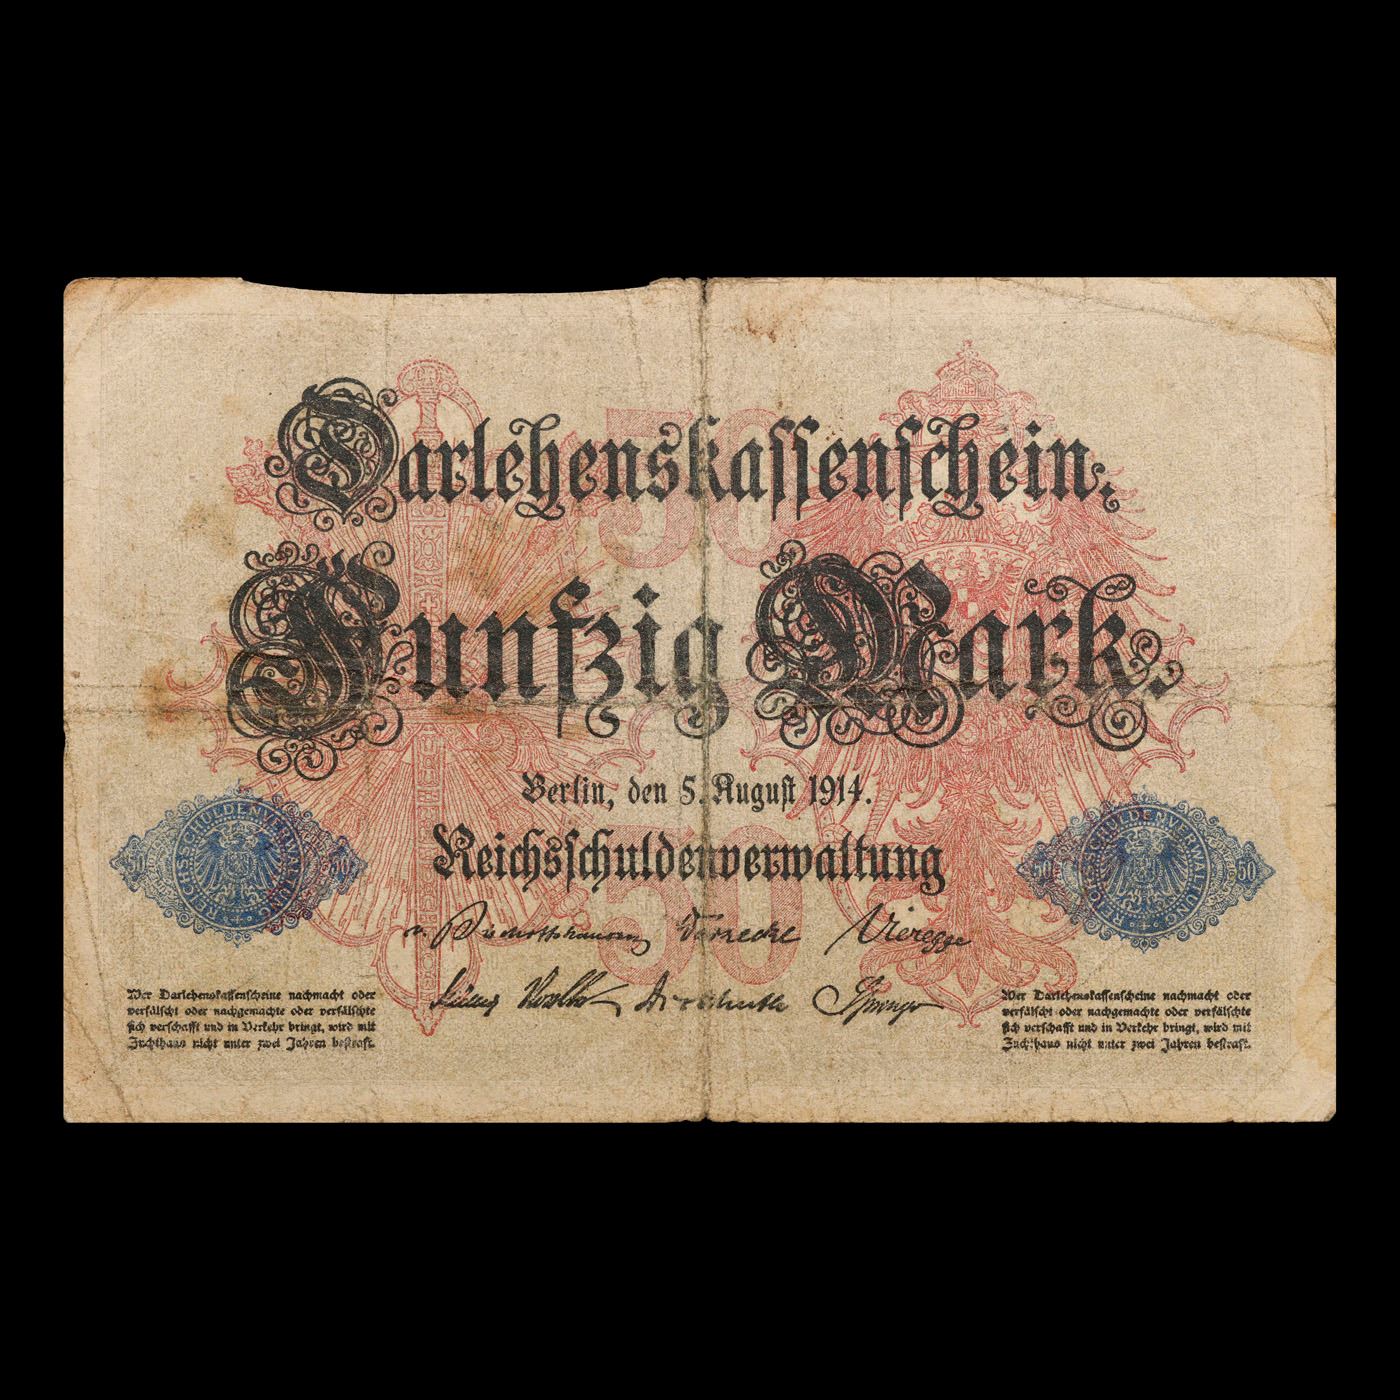 Darlehenskassenschein.
50
Fünfzig Mark.
Berlin, den 5. August 1914.
Reichsschuldenverwaltung
50
REICHSSCHULDENVERWALTUNG
50 50
REICHSSCHULDENVERWALTUNG
50 50
v. Bischoffshausen Warnecke Vieregge
Müller Dickhuth Springer
Wer Darlehenskassenscheine nachmacht oder
verfälscht oder nachgemachte oder verfälschte
sich verschafft und in Verkehr bringt, wird mit
Zuchthaus nicht unter zwei Jahren bestraft.
Wer Darlehenskassenscheine nachmacht oder
verfälscht oder nachgemachte oder verfälschte
sich verschafft und in Verkehr bringt, wird mit
Zuchthaus nicht unter zwei Jahren bestraft.